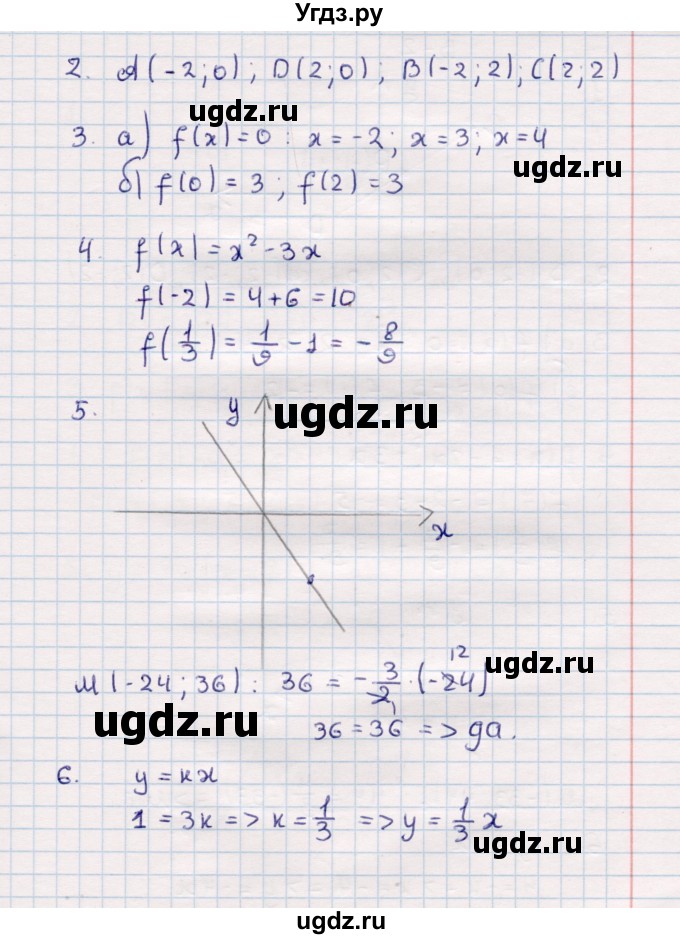 Угдз.ру
2. A(-2;0); D(2;0); B(-2;2); C(2;2)
ugdz.ru
3. а) f(x)=0 : x=-2; x=3; x=4
ugdz.ru
б) f(0)=3; f(2)=3
4. f(x)=x²-3x
f(-2)=4+6=10
f(1/3)=1/9-1=-8/9
5. y
ugdz.ru
x
ugdz.ru
M(-24;36): 36=-3/2·(-24) 12 1
ugdz.ru
36=36 => да.
6. y=kx
1=3k => k=1/3 => y=1/3 x
ugdz.ru
ugdz.ru